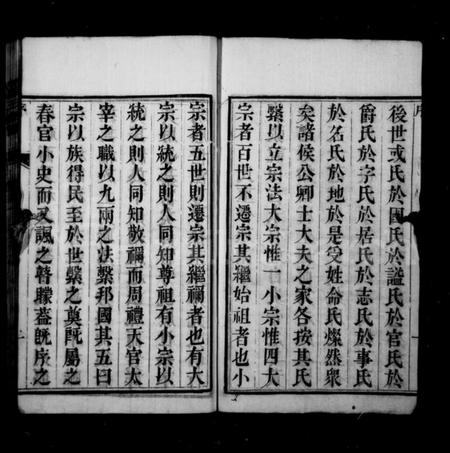 序
後世或氏於國氏於諡氏於官氏於
爵氏於字氏於居氏於志氏於事氏
於名氏於地於是受姓命氏燦然衆
矣諸侯公卿士大夫之家各按其氏
繫以立宗法大宗惟一小宗惟四大
宗者百世不遷宗其繼始祖者也小
宗者五世則遷宗其繼禰者也有大
宗以統之則人同知尊祖有小宗以
統之則人同知敬禰而周禮天官太
宰之職以九兩之法繫邦國其五曰
宗以族得民至於世繫之奠既屬之
春官小史而又諷之瞽矇蓋既序之